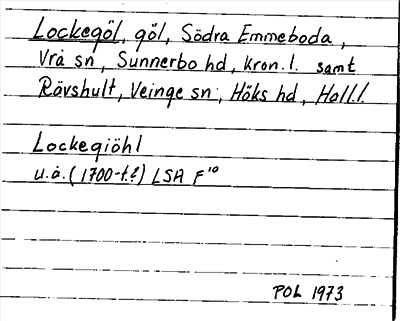 Lockegöl, göl, Södra Emmeboda,
Vrå sn, Sunnerbo hd, kron.l. samt
Rävshult, Veinge sn, Höks hd, Hall.l.
Lockegiöhl
u.å. (1700-t.?) LSA F¹⁰
POL 1973